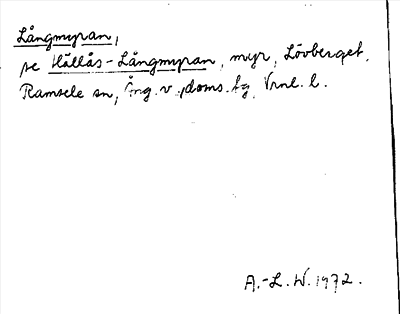 Långmyran,
se Hällås-Långmyran, myr, Lövberget,
Ramsele sn, Ång. v., doms. tg, Vrnl. l.
A.-L. W. 1972.